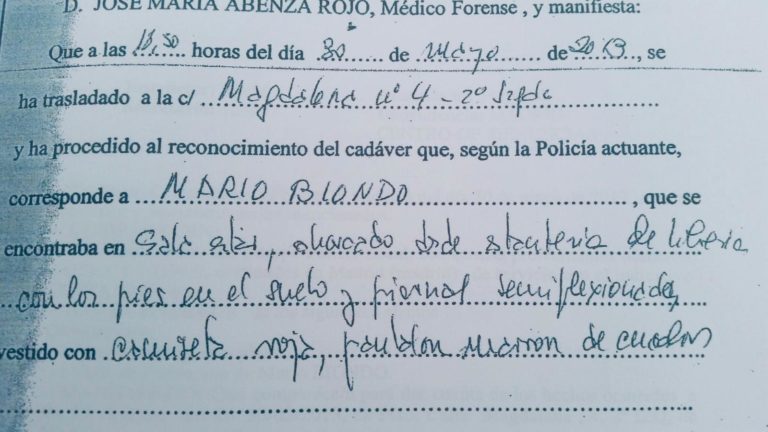 D. JOSE MARIA ABENZA ROJO, Médico Forense , y manifiesta:
Que a las 18,30 horas del día 30 de Mayo de 2013, se
ha trasladado a la c/ Magdalena nº 4 - 2º Izqda
y ha procedido al reconocimiento del cadáver que, según la Policía actuante,
corresponde a MARIO BIONDO , que se
encontraba en Sala estar, ahorcado desde estanteria de libreria
con los pies en el suelo y piernas semiflexionadas,
vestido con camiseta roja, pantalon marron de cuadros